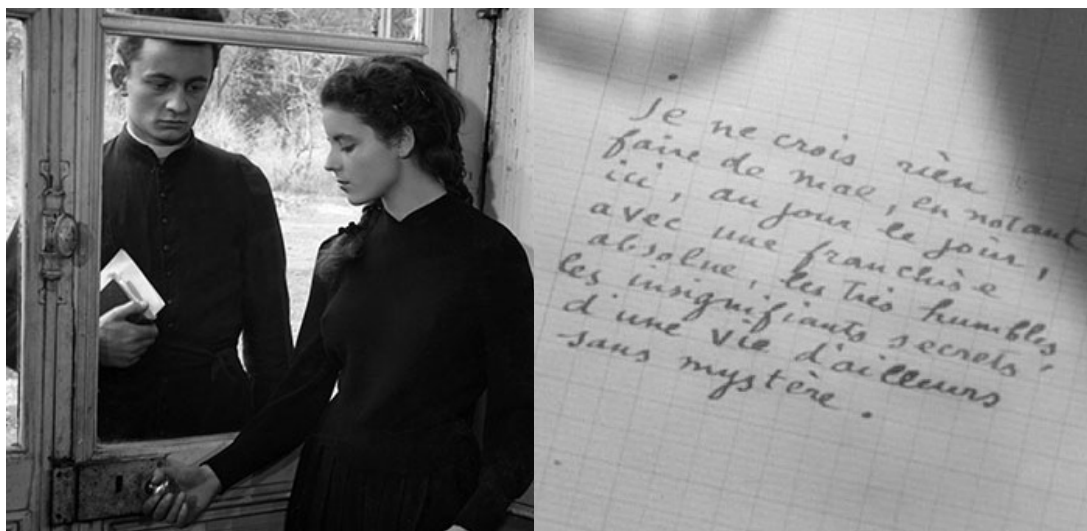 Je ne crois rien
faire de mal, en notant
ici, au jour le jour,
avec une franchise
absolue, les très humbles
les insignifiants secrets
d'une vie d'ailleurs
sans mystère.